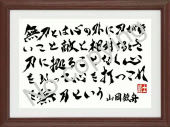 無刀とは心の外に刀がな
いこと敵と相対するとき
刀に拠ることなく心
をもって心を打つこれ
を無刀という 山岡鉄舟